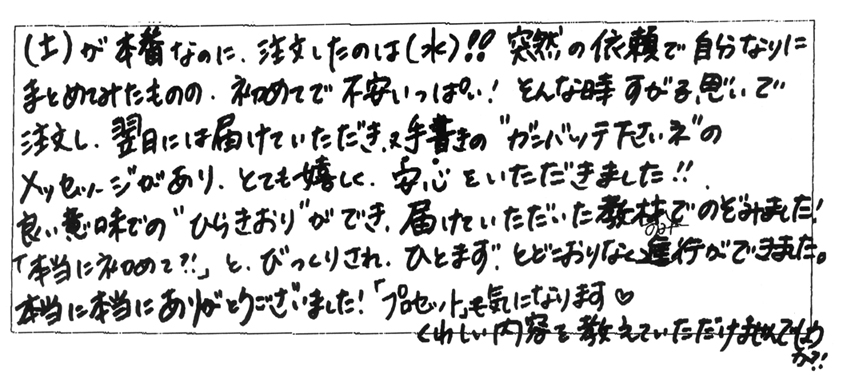 (土)が本番なのに、注文したのは(水)!! 突然の依頼で自分なりに
まとめてみたものの、初めてで不安いっぱい! そんな時すがる思いで
注文し、翌日には届けていただき、又手書きの"ガンバッテ下さいネ"の
メッセージがあり、とても嬉しく、安心をいただきました!!
良い意味での"ひらきおり"ができ、届けていただいた教材でのぞみました!
「本当に初めて?!」と、びっくりされ、ひとまず、とどこおりなく進行ができました。
本当に本当にありがとうございました!「プロセット」も気になります♡
くわしい内容を教えていただけませんでしょう
か?!